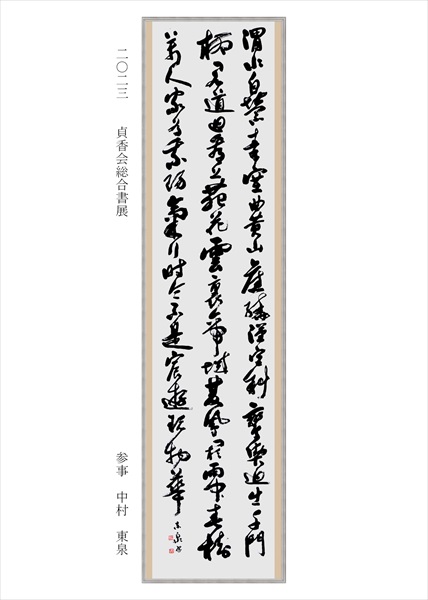 渭水自縈秦塞曲黄山舊繞漢宮斜鑾輿迥出千門
柳閣道迴看上苑花雲裏帝城雙鳳闕雨中春樹
萬人家為乘陽氣行時令不是宸遊玩物華
東泉書
二〇二三 貞香会総合書展
参事 中村 東泉